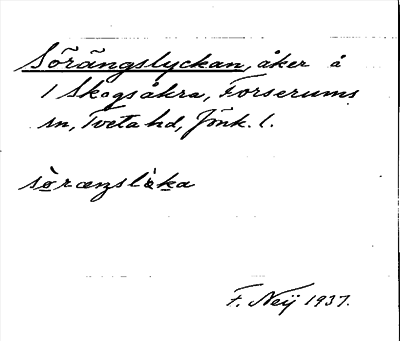 Sörängslyckan, åker å
1 Skogsåkra, Forserums
sn, Tveta hd, Jönk. l.
F. Neij 1937.